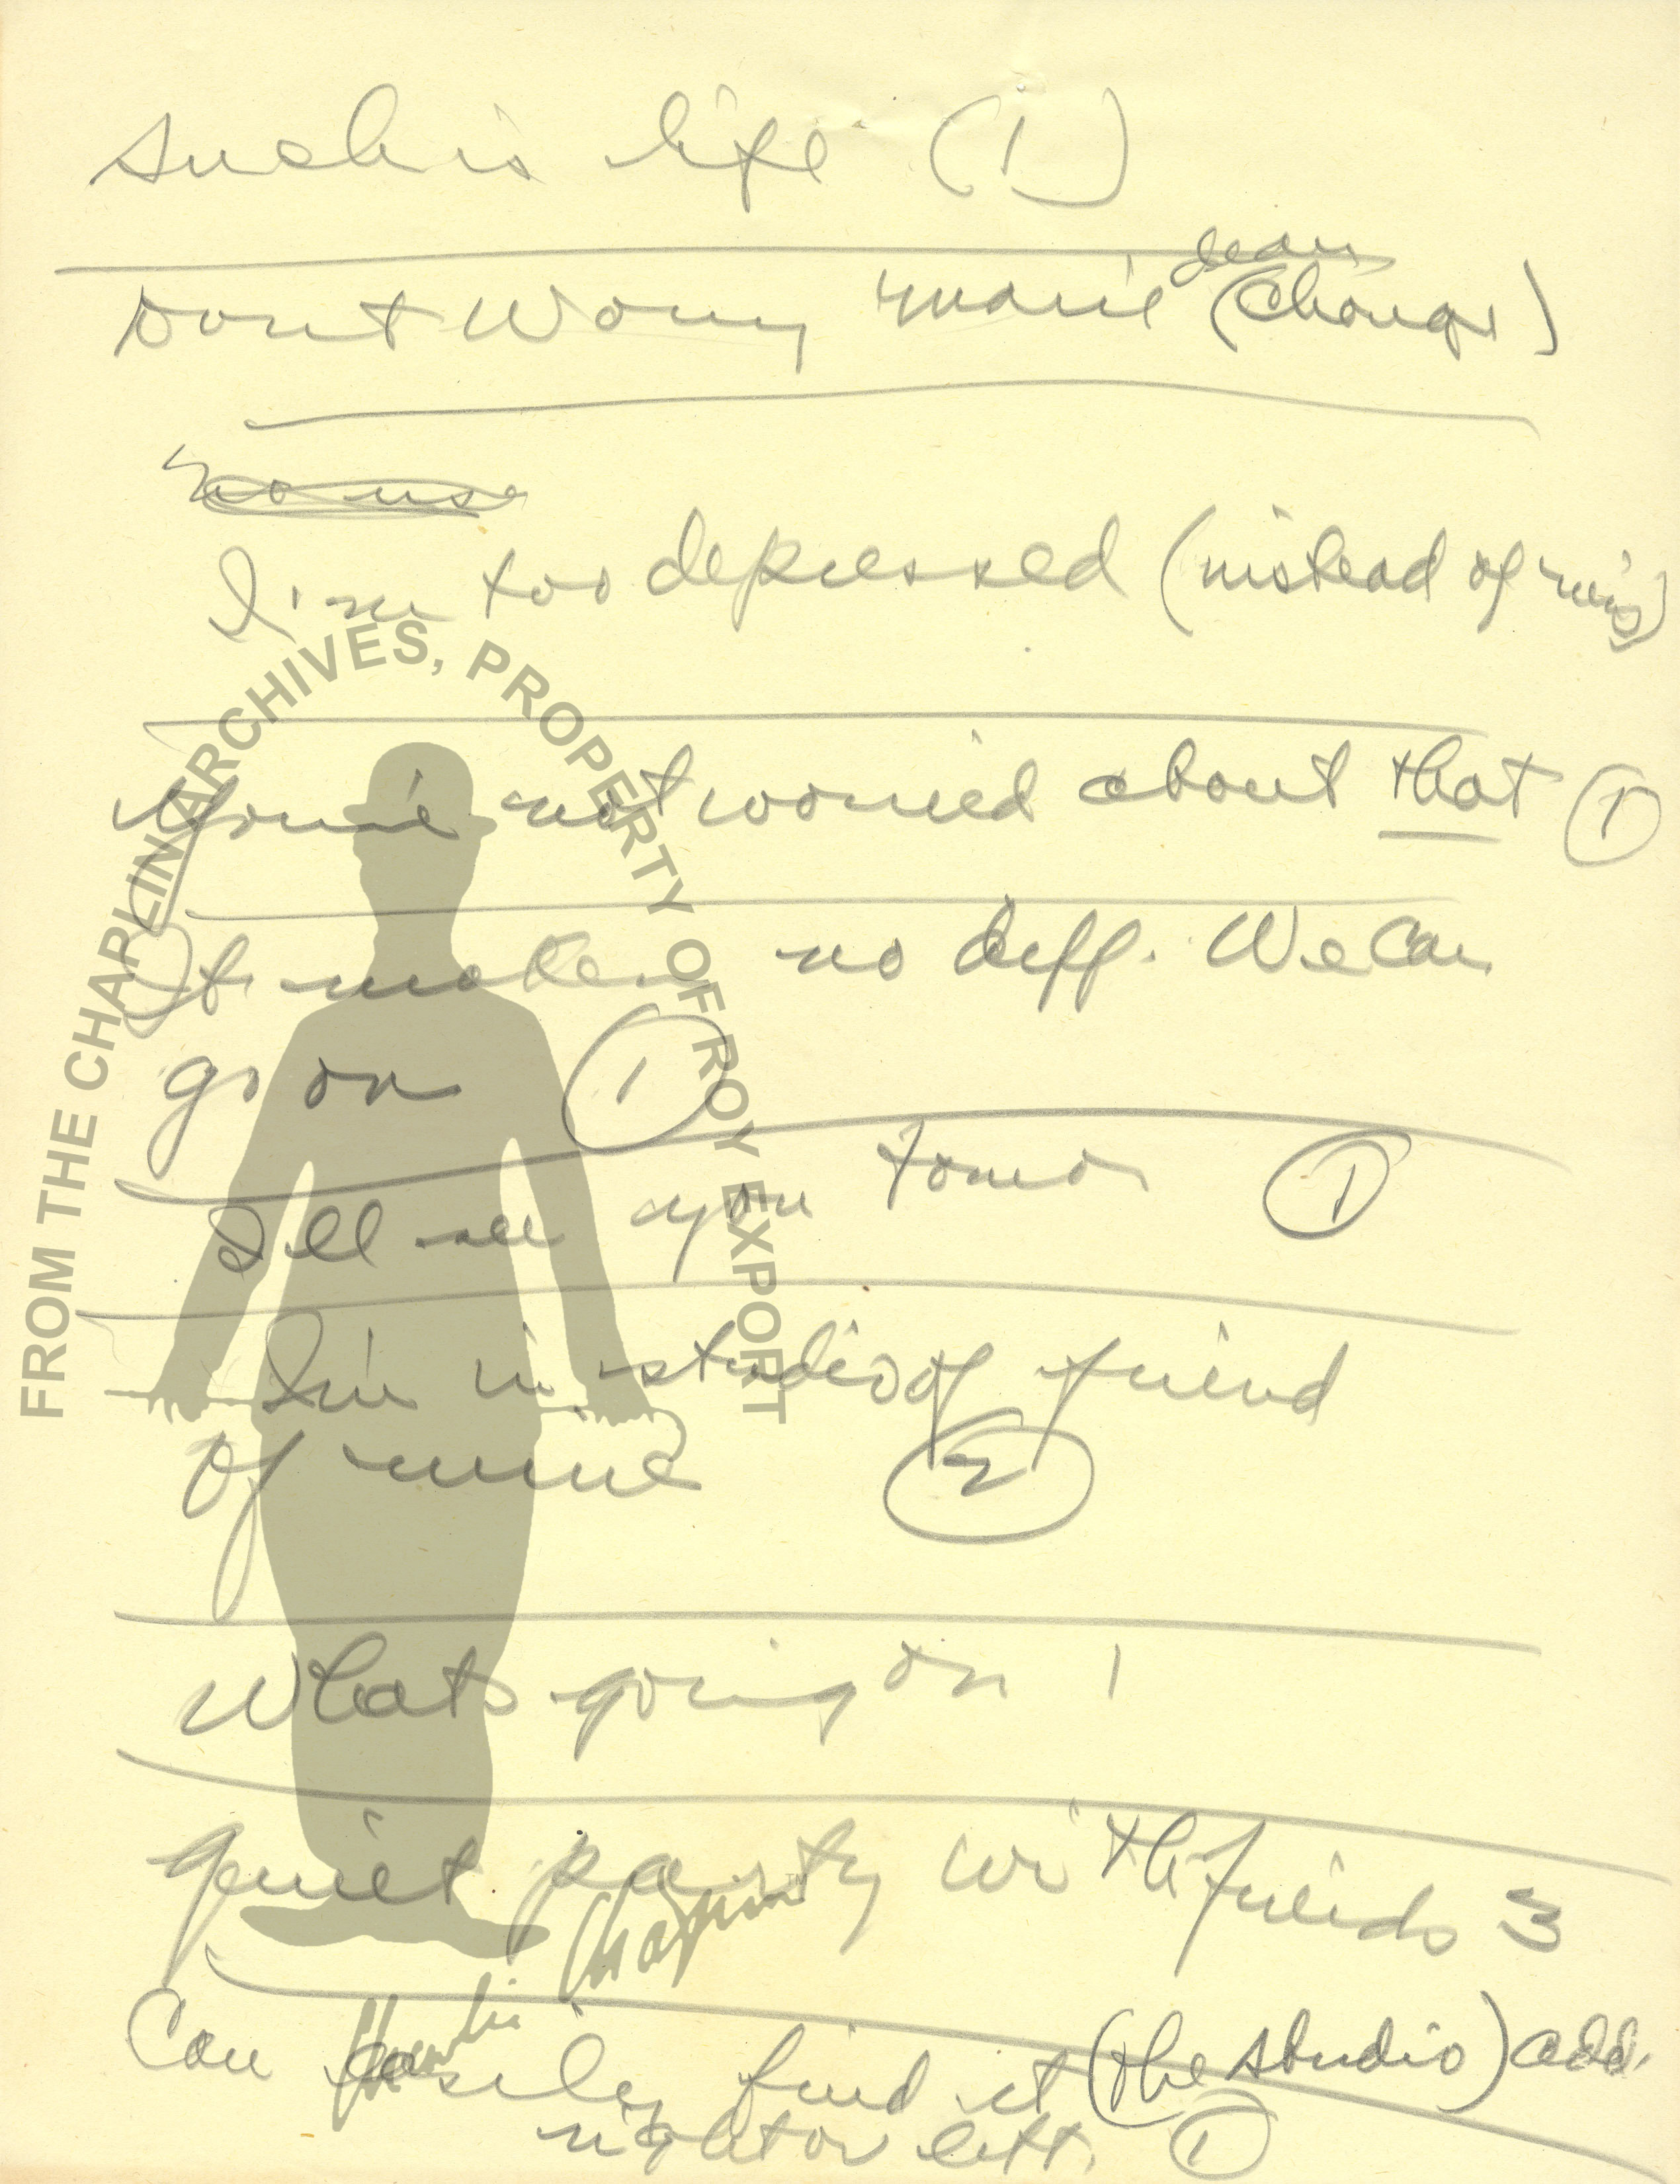 Such is life (1)
dear
Dont Worry Marie (Change)
no use
I'm too depressed (instead of
You're not worried about that (1)
It makes no diff. We can
go on (1)
I'll see you tomor (1)
I'm in studio of friend
of mine (2)
Whats going on 1
quiet party with friends 3
Can easily find it (the studio) add.
right or left. (1)
FROM THE CHAPLIN ARCHIVES, PROPERTY OF ROY EXPORT
Charlie Chaplin